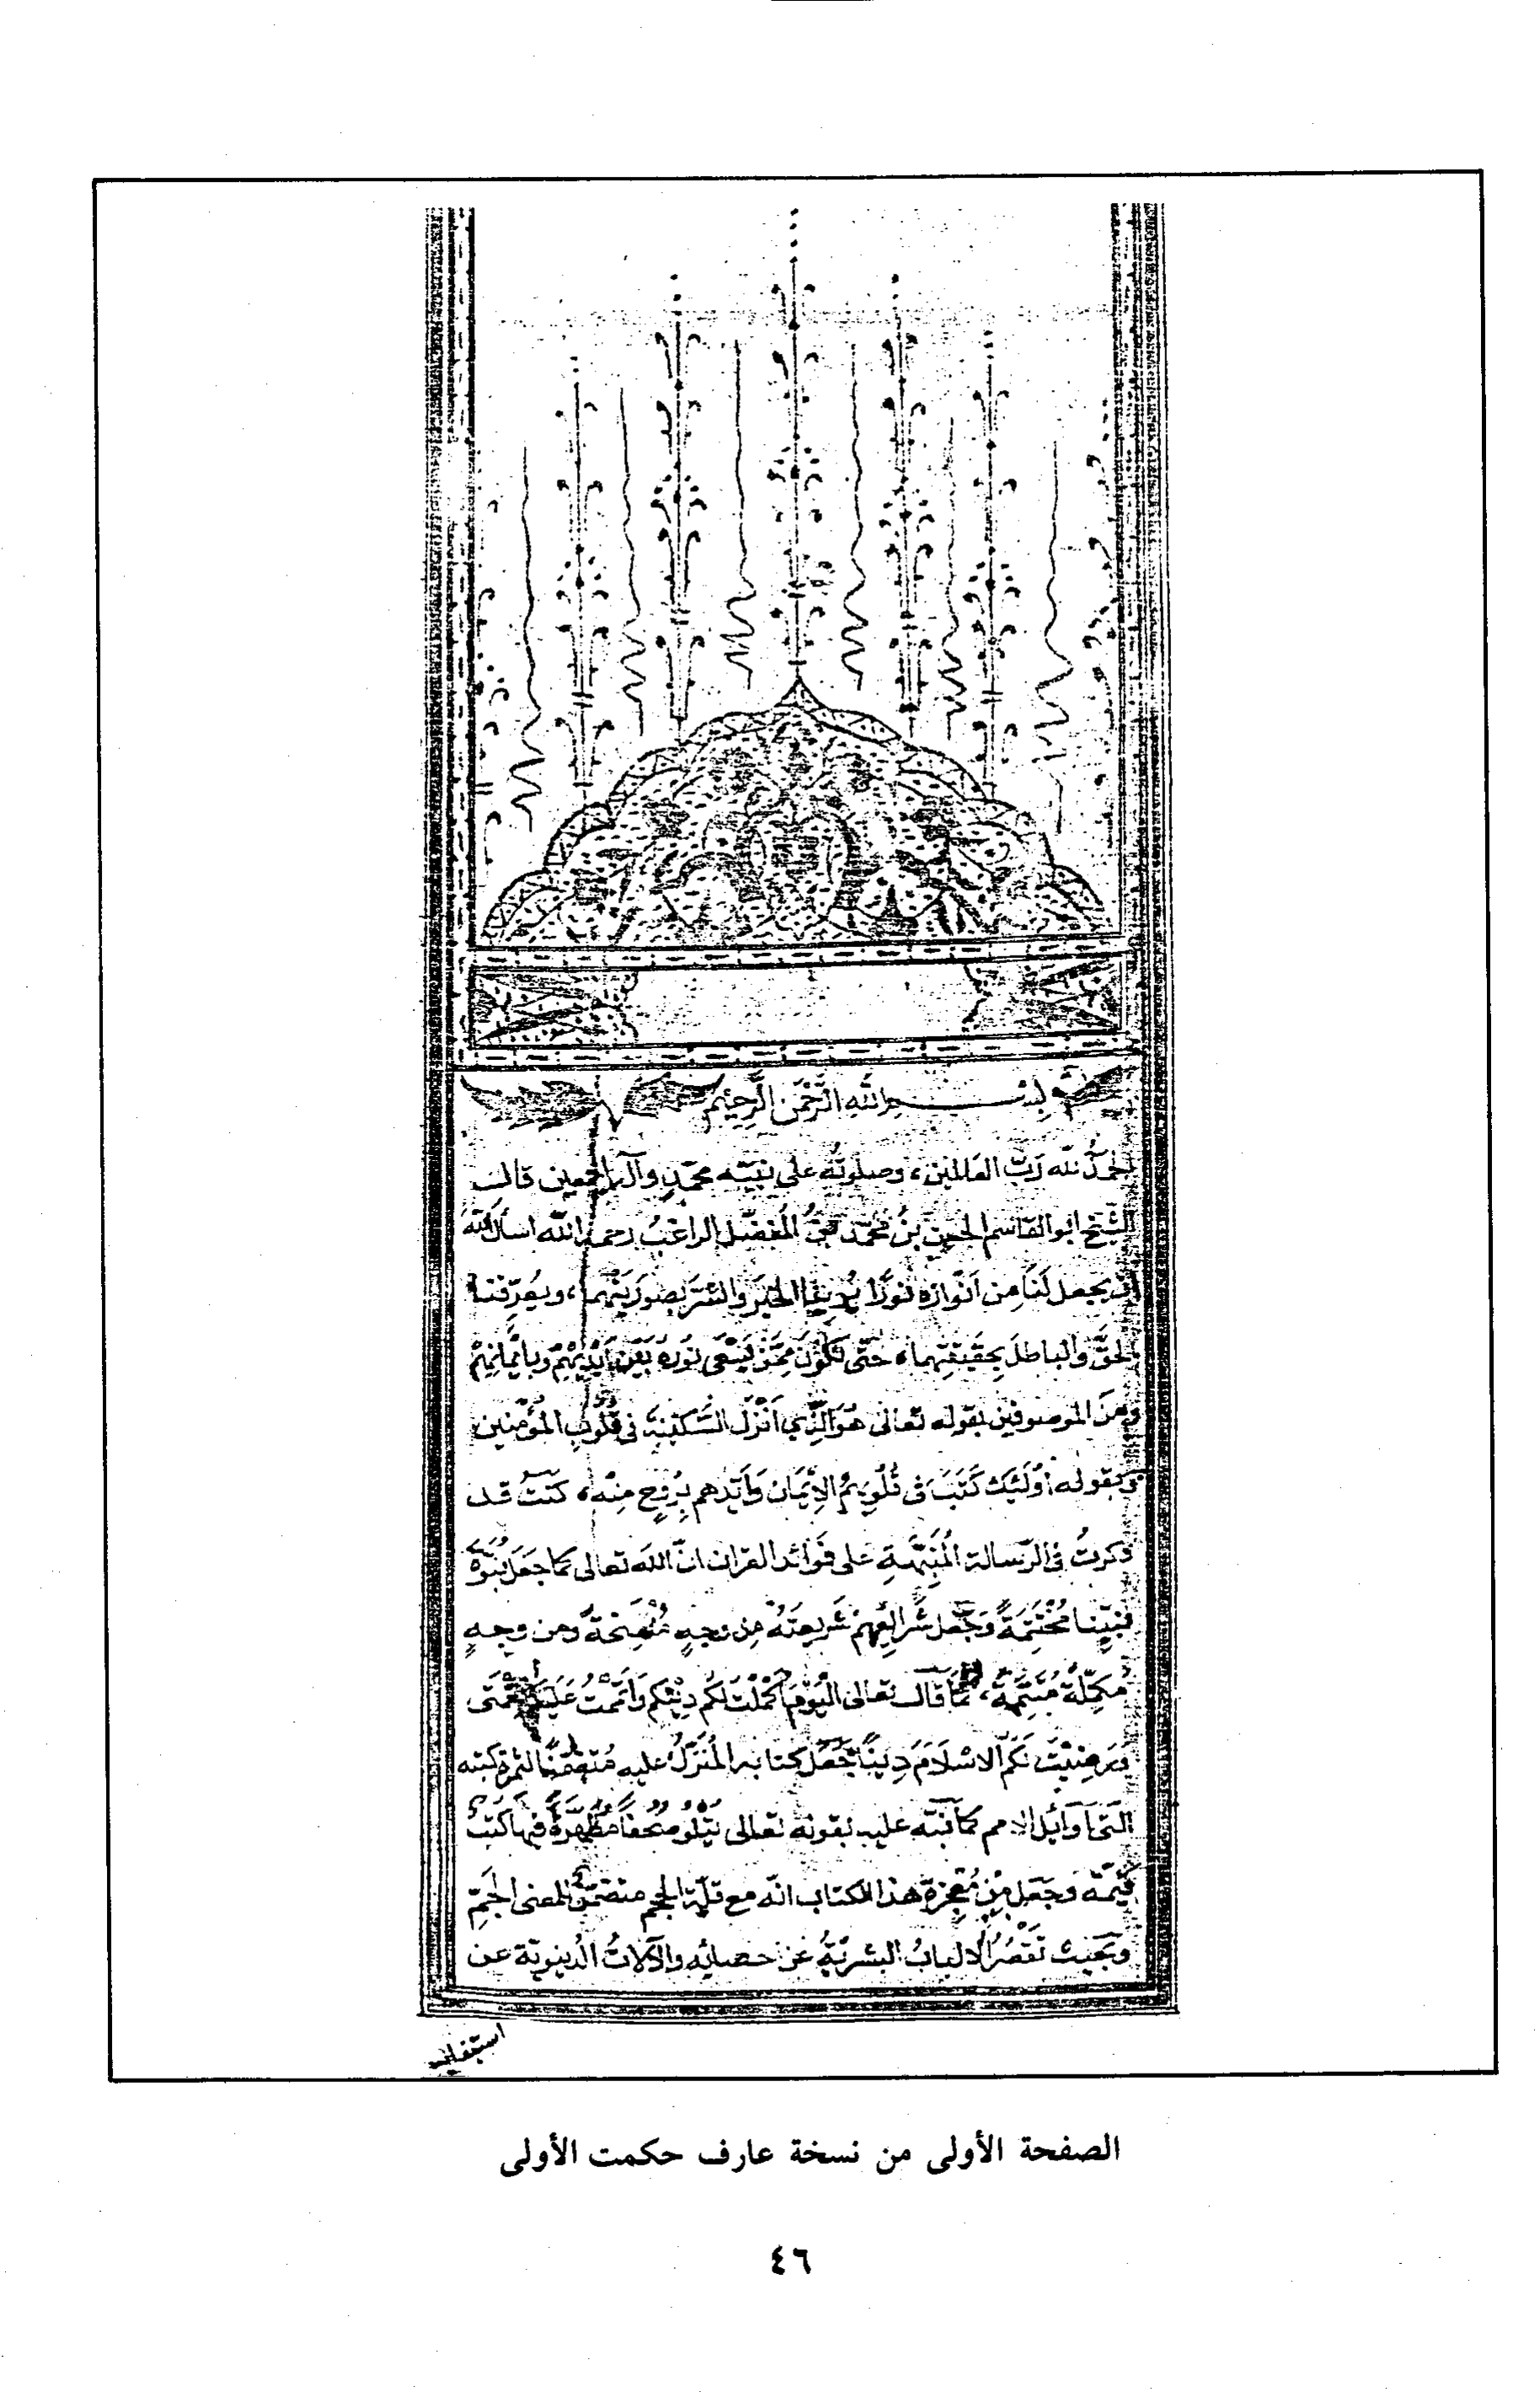 بسم الله الرحمن الرحيم
الحمدُ لله رَبّ العَالمين، وصلوتُه على نبيّه محمّدٍ وآله اجمعين قال
الشّيخ ابو القاسم الحسين بنُ محمّد بنُ المُفضّل الراغبُ رحمه الله اسأل اللهَ
أن يجعل لَنَا مِن اَنْوَارِه نورًا يُرِينا الخيرَ والشرَّ بصُورَتَيْهما، ويُعَرِّفنا
الحقَّ والباطلَ بِحَقيقَتِهما، حتّى نكُونَ مِمَّنْ يَسْعَى نُورُهُ بَيْنَ اَيْدِيْهِمْ وبِاَيْمَانِهِمْ
ومنَ الموصوفين بقوله تعالى هُوَ الَّذِي اَنْزَلَ السَّكِيْنَةَ فى قُلُوبِ المُؤْمِنين
وبقوله اُولَئِكَ كَتَبَ فى قُلُوبِهِمُ الاِيْمَان وَاَيَّدهم بِرُوحٍ مِنْه، كنتُ قد
ذكرتُ فى الرّسالة المُنَبِّهَةِ على فَوَائد القرآن انّ اللهَ تعالى كما جَعَلَ نُبُوَّةَ
نَبِيِّنا مُخْتَتِمَةً وَجَعَلَ شَرَائِعَهُمْ بشَرِيعَتِهِ مِن وجهٍ مُنْتَسِخَةً ومن وجهٍ
مُكمِّلَةً مُتَمِّمَةً، كما قال تعالى اليَوْمَ اَكْمَلْتُ لَكُم دِيْنَكُم وَاَتْمَمْتُ عَلَيْكُمْ نِعْمَتى
وَرَضِيْتُ لَكُمُ الاسْلَامَ دِيْنًا جَعَلَ كتابه المُنَزَّلَ عليه مُتَضَمِّنًا لثمرة كتبه
الَّتى اَوَائِلَ الامم كما نَبَّه عليه بقوله تعالى يَتْلُو صُحُفًا مُطَهَّرَةً فِيهَا كُتُبٌ
قَيِّمَةٌ وجَعَلَ مِنْ مُعْجِزَةِ هذا الكتاب انّه مع قلّة الحجم متضمّنٌ للمعنى الجَمِّ
وبحيث تَقْصُرُ الالبابُ البشريّةُ عن احصائه والآلاتُ الدُّنيويّة عن
استيفائه
الصفحة الأولى من نسخة عارف حكمت الأولى
٤٦